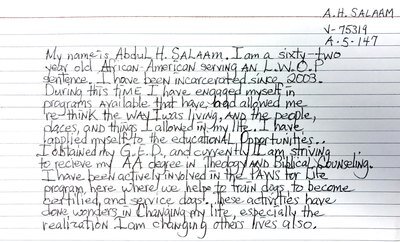 A.H. SALAAM
V-75319
A-5-147
My name is Abdul H. SALAAM. I am a sixty-two
year old African-American serving an L.W.O.P
sentence. I have been incarcerated since 2003.
During this time I have engaged myself in
programs available that have had allowed me
re-think the WAY I was living, AND the people,
places, and things I allowed in my life. I have
applied myself to the educational Opportunities..
I obtained my G.E.D, and currently I am striving
to recieve my AA degree in Theology and Biblical Counseling.
I have been actively involved in the PAWS for Life
program here where we help to train dogs to become
certified, and service dogs. These activities have
done wonders in Changing my life, especially the
realization I am changing others lives also.